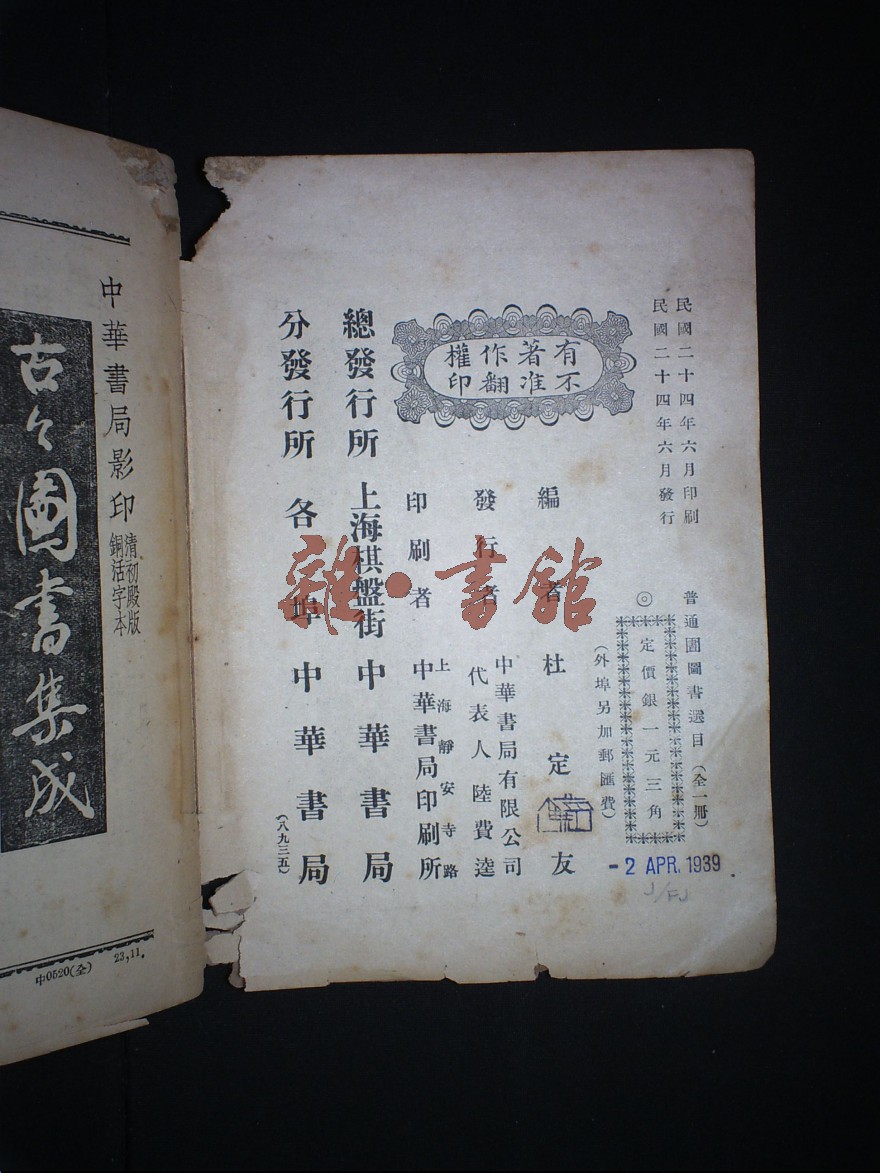 民國二十四年六月印刷
民國二十四年六月發行
普通圕圖書選目（全一册）
◎
定價銀一元三角
（外埠另加郵匯費）
有著作權
不准翻印
編者 杜定友
發行者 中華書局有限公司
代表人陸費逵
印刷者 上海靜安寺路
中華書局印刷所
總發行所 上海棋盤街 中華書局
分發行所 各埠 中華書局
（八九三五）
- 2 APR. 1939
J/FJ
雜·書館
中華書局影印
清初殿版
銅活字本
古今圖書集成
中0520(全)
23,11.